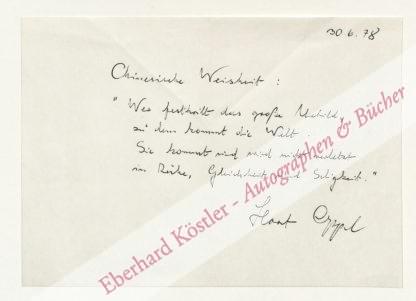 30.6.78
Chinesische Weisheit :
"Wer festhält das große Urbild,
zu dem kommt die Welt.
Sie kommt und wird nicht verletzt
in Ruhe, Gleichheit und Seligkeit."
Horst
Eberhard Köstler - Autographen & Bücher